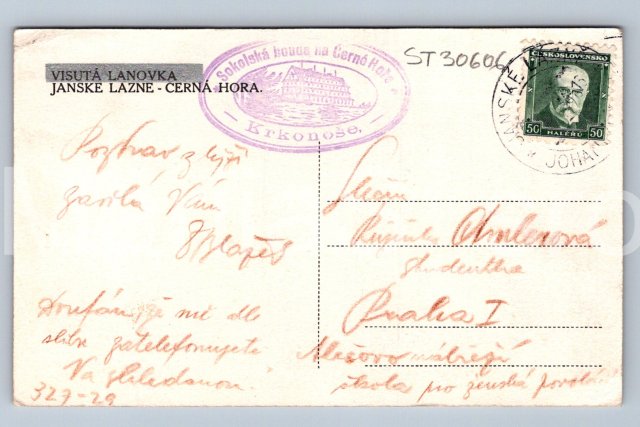 VISUTÁ LANOVKA
JANSKE LAZNE - ČERNÁ HORA.
Sokolská bouda na Černé Hoře
Krkonoše.
ST30606
ČESKOSLOVENSKO
50 HALÉŘŮ 50
JANSKÉ LÁ
JOHA
Pozdrav z lyží
zasílá Vám
Doufám, že mě dle
slibu zatelefonujete
Na shledanou!
327-29
Slečna
Růženka
studentka
Praha I
Alešovo nábřeží
škola pro ženská povolání